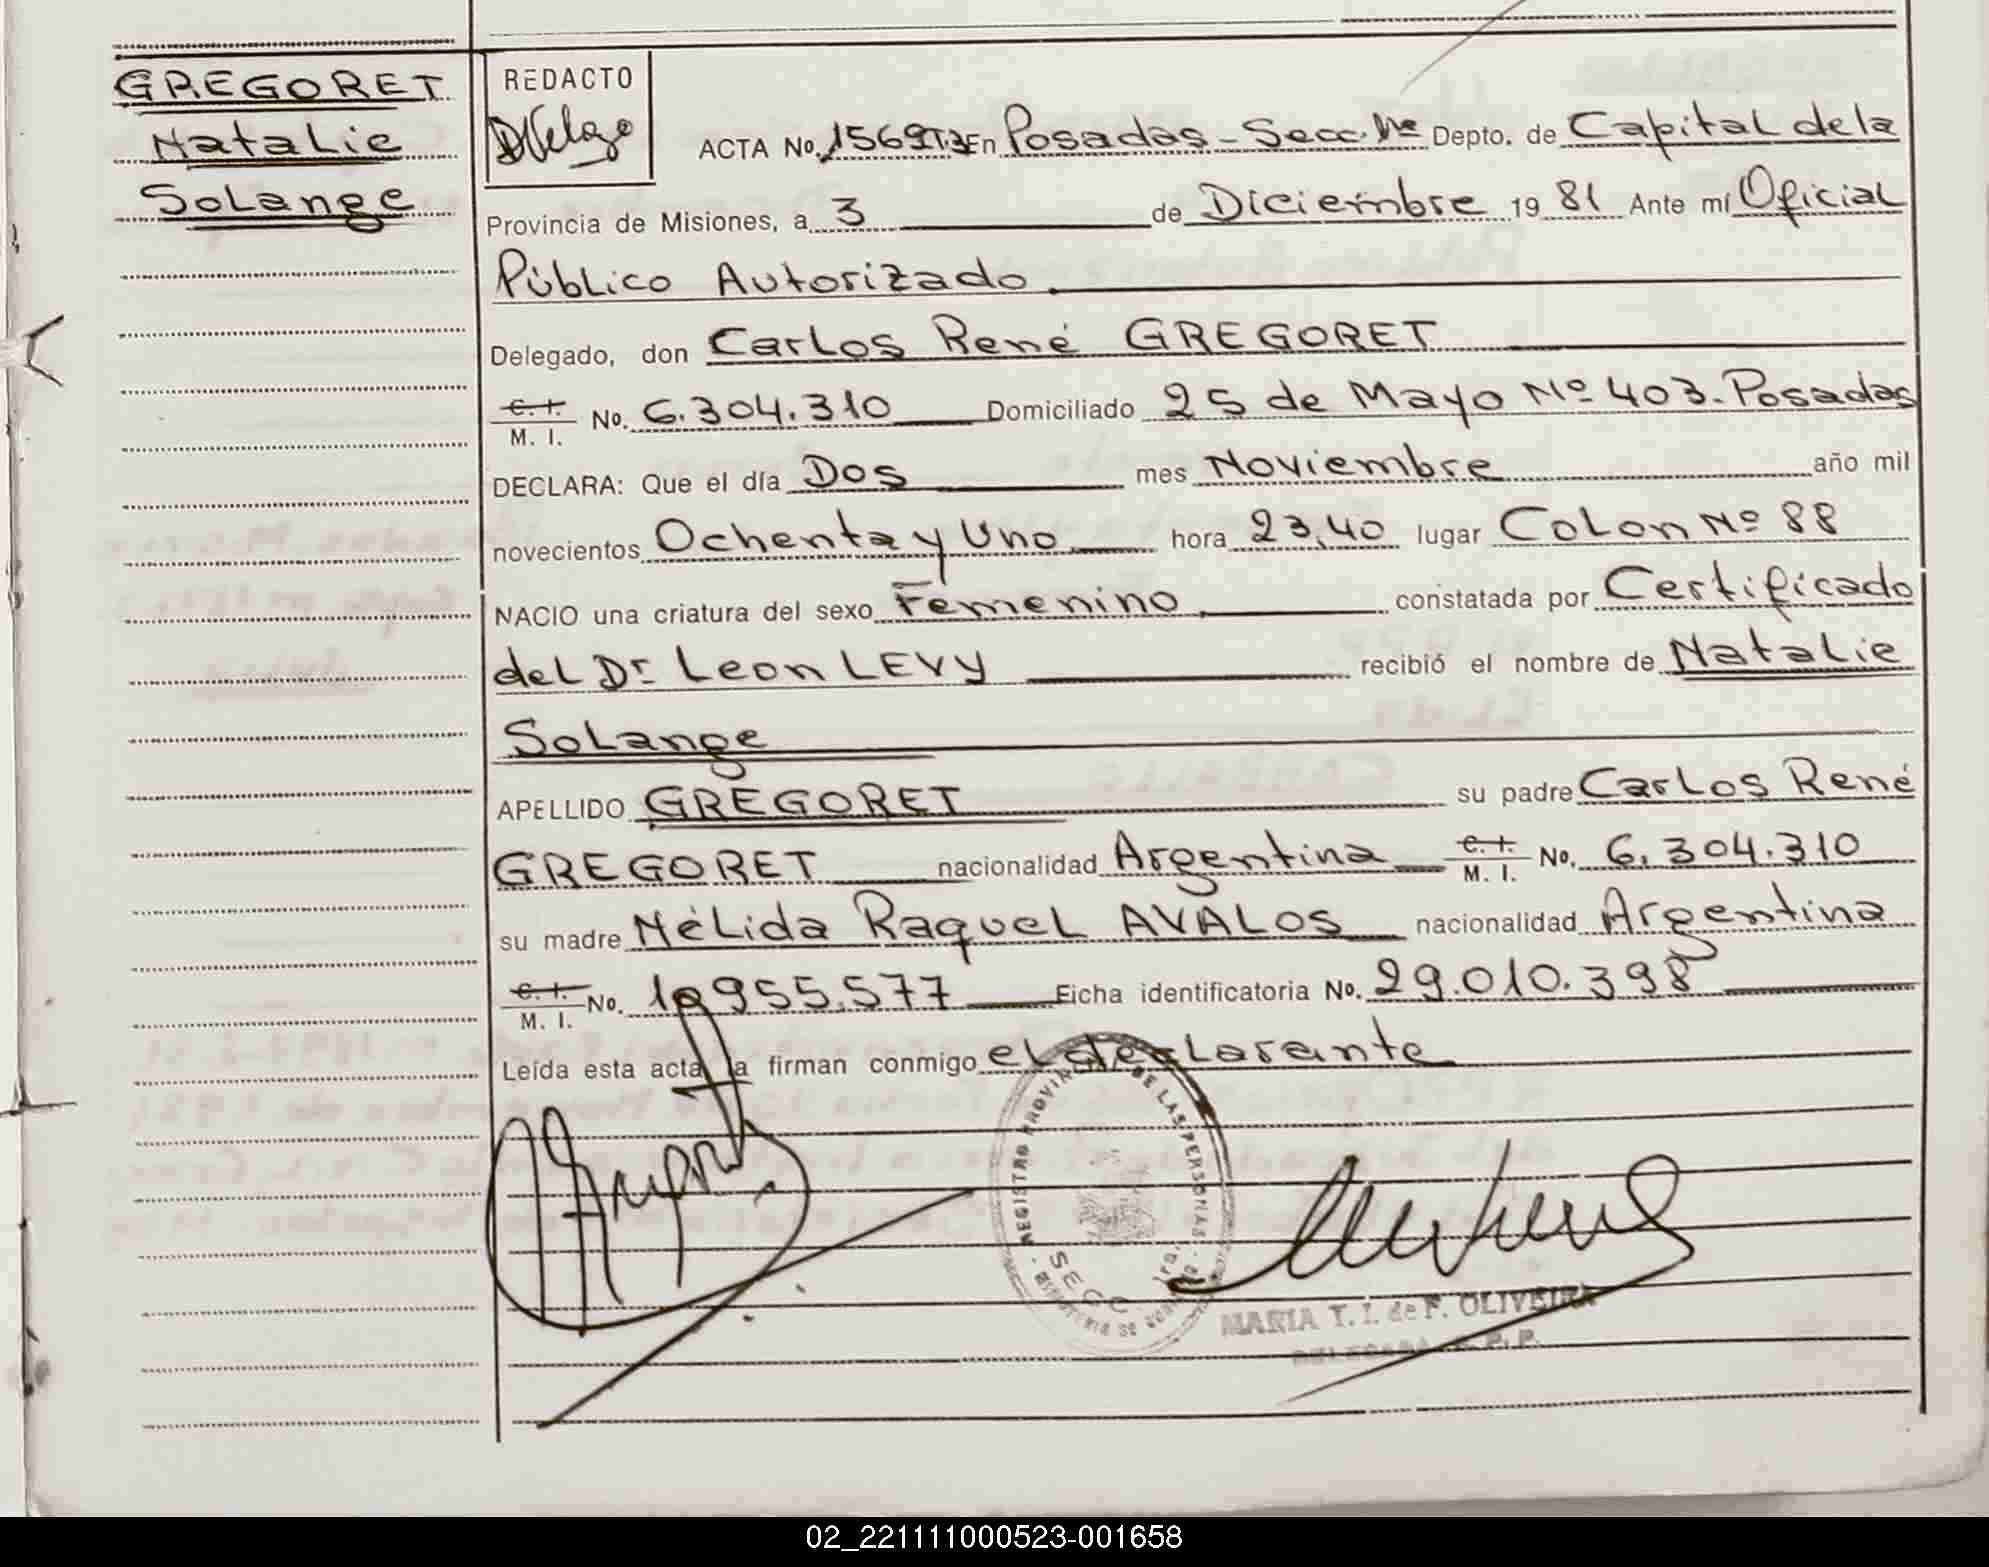 GREGORET
Natalie
Solange
REDACTO
ACTA No. 1569T3 En Posadas - Secc. 1ra Depto. de Capital de la
Provincia de Misiones, a 3 de Diciembre 19 81 Ante mí Oficial
Público Autorizado.
Delegado, don Carlos René GREGORET
C. I.
M. I. No. 6.304.310 Domiciliado 25 de Mayo Nº 403. Posadas
DECLARA: Que el día Dos mes Noviembre año mil
novecientos Ochenta y Uno hora 23,40 lugar Colon Nº 88
NACIO una criatura del sexo Femenino constatada por Certificado
del Dr Leon LEVY recibió el nombre de Natalie
Solange
APELLIDO GREGORET su padre Carlos René
GREGORET nacionalidad Argentina C. I. M. I. No. 6.304.310
su madre Nélida Raquel AVALOS nacionalidad Argentina
C. I. M. I. No. 10.955.577 Ficha identificatoria No. 29.010.398
Leída esta acta la firman conmigo el declarante
REGISTRO PROVINCIAL DE LAS PERSONAS
SECC. 1ra.
MINISTERIO DE GOBIERNO
MARIA T. I. de F. OLIVEIRA
DELEGADA R. P. P.
02_221111000523-001658